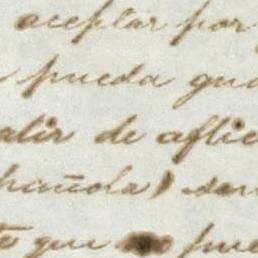 aceptar por
pueda gua
alir de aflic
pañola) ser
te que pue